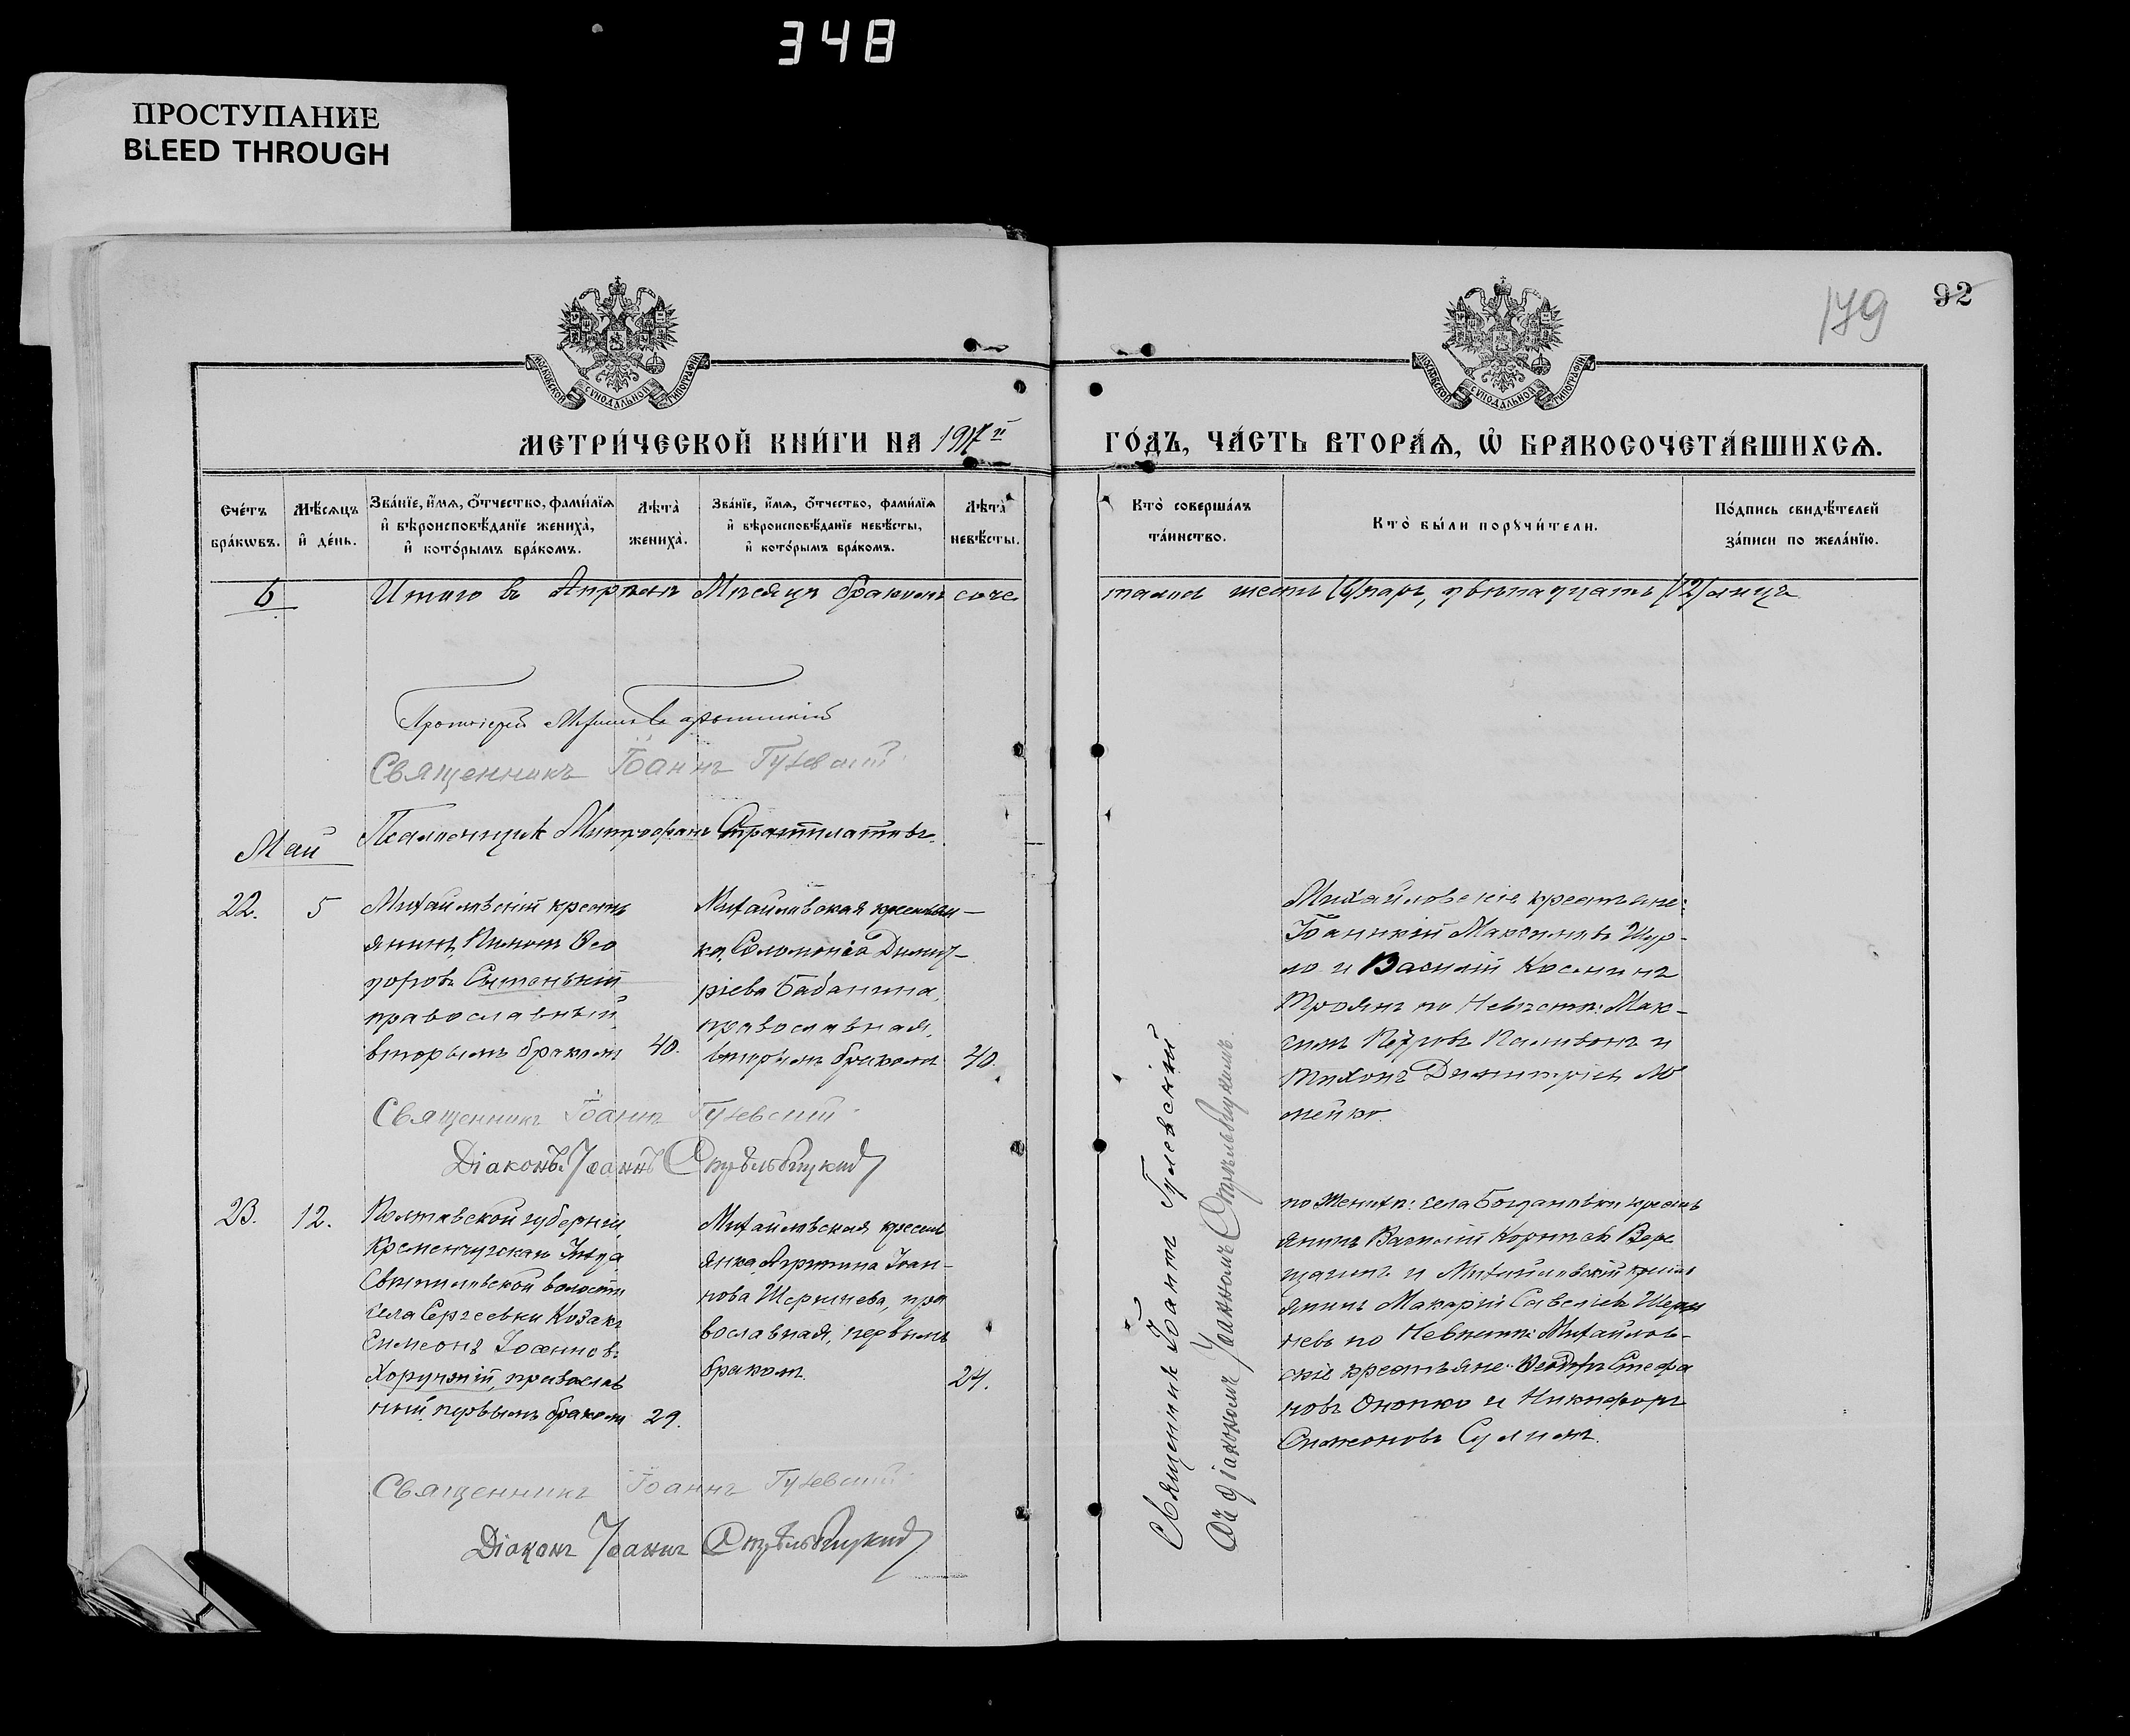 348
ПРОСТУПАНИЕ
BLEED THROUGH
179
92
МОСКОВСКОЙ СѴНОДАЛЬНОЙ ТИПОГРАФІИ
МОСКОВСКОЙ СѴНОДАЛЬНОЙ ТИПОГРАФІИ
МЕТРИ́ЧЕСКОЙ КНИ́ГИ НА 1917 й
ГО́ДЪ, ЧА́СТЬ ВТОРА́Ѧ, Ѡ҆ БРАКОСОЧЕТА́ВШИХСѦ.
Сче́тъ бра́кѡвъ.
Мѣ́сѧцъ и҆ де́нь.
Зва́нїе, и҆́мѧ, ѻ҆́тчество, фами́лїѧ
и҆ вѣроисповѣ́данїе жениха̀,
и҆ кото́рымъ бра́комъ.
Лѣта̀ жениха̀.
Зва́нїе, и҆́мѧ, ѻ҆́тчество, фами́лїѧ
и҆ вѣроисповѣ́данїе невѣ́сты,
и҆ кото́рымъ бра́комъ.
Лѣта̀ невѣ́сты.
Кто̀ соверша́лъ
та́инство.
Кто̀ бы́ли порꙋчи́тели.
По́дпись свидѣ́телей
за́писи по жела́нїю.
6
Итого въ Апрѣлѣ Мѣсяцѣ бракомъ соче
талось шесть (6) паръ, двѣнадцать (12) лицъ
Протоіерей
Священникъ Іоаннъ Гулевскій
Псаломщикъ Митрофанъ Стратилатовъ.
Май
22.
5
Михайловскій кресть
янинъ, Пименъ Ѳео
доровъ Сытенькій
православный
вторымъ бракомъ
40.
Михайловская крестьян-
ка, Соломонія Димит-
ріева Бабанина,
православная,
вторымъ бракомъ
40.
Михайловскіе крестьяне:
Іоанникій Максимовъ Шур-
ло и Василій Косьминъ
Троянъ по Невѣстѣ: Мак-
симъ Петровъ и
Тихонъ Димитріевъ Ло
мейко.
Священникъ Іоаннъ Гулевскій
Діаконъ Іоаннъ Стрѣльбицкій
23.
12.
Полтавской губерніи,
Кременчугскаго Уѣзда
волости
села Сергеевки Козакъ
Симеонъ Іоанновъ
Хоружій, православ
ный, первымъ бракомъ
29.
Михайловская кресть
янка, Агрипина Іоан-
нова Шернева, пра
вославная, первымъ
бракомъ.
24.
по Женихѣ: села Богдановки кресть
янинъ Василій Корніевъ Вере
щагинъ и Михайловскій кресть
янинъ Макарій Савеліевъ Шер
невъ по Невѣстѣ: Михайлов-
скіе крестьяне: Ѳеодоръ Стефа
новъ Онопко и Никифоръ
Симеоновъ Сулимъ.
Священникъ Іоаннъ Гулевскій
Діаконъ Іоаннъ Стрѣльбицкій
Священникъ Іоаннъ Гулевскій
Съ діакономъ Іоанномъ Стрѣльбицкимъ.